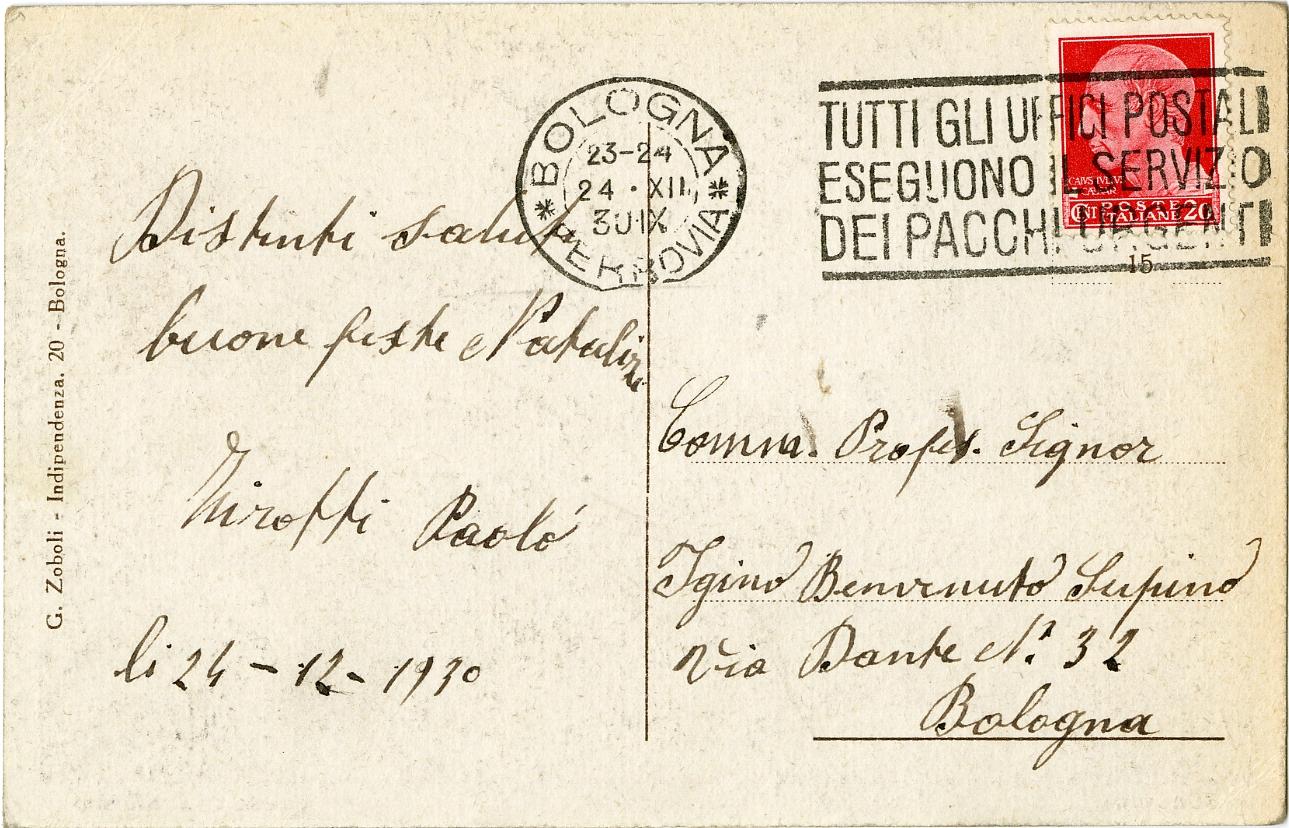 G. Zoboli - Indipendenza. 20 - Bologna.
Distinti saluti
buone feste Natalizi
Paolo
li 24 - 12 - 1930
BOLOGNA
23-24
24 · XII
30 IX
FERROVIA
TUTTI GLI UFFICI POSTALI
ESEGUONO IL SERVIZIO
DEI PACCHI URGENTI
CAIVS IVLIVS
CAESAR
CT POSTE 20
ITALIANE
15
Comm. Profes. Signor
Igino Benvenuto Supino
Via Dante N.º 32
Bologna